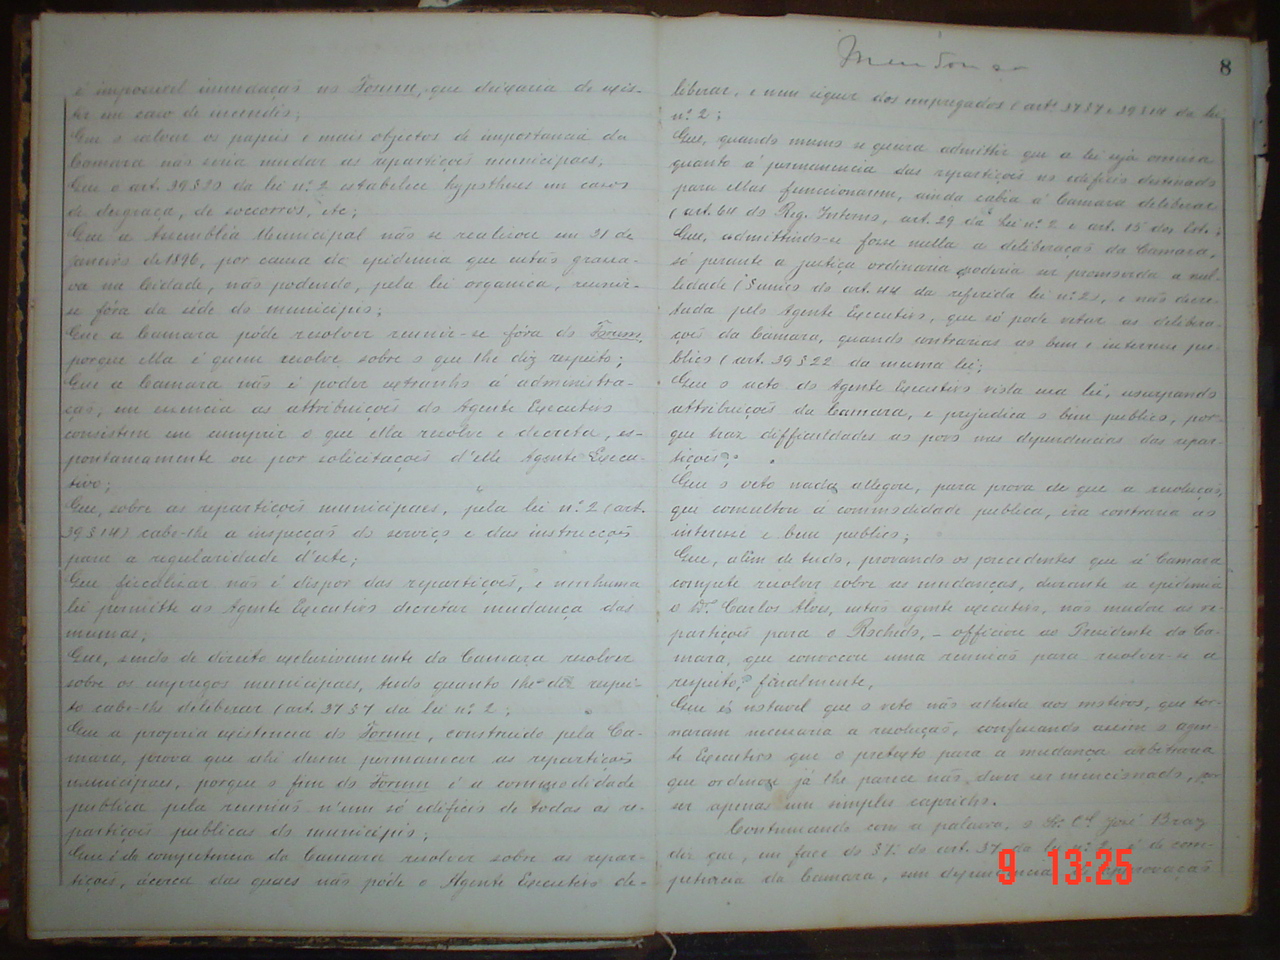 é impossivel inundação no Forum, que deixaria de exis-
tir em caso de incendio;
Que o salvar os papeis e mais objectos de importancia da
Camara não seria mudar as repartições municipaes,
Que o art. 39 § 20 da lei nº 2 estabelece hypotheses em casos
de desgraça, de soccorros, etc;
Que a Assembléa Municipal não se realisou em 21 de
Janeiro de 1896, por causa da epidemia que então grassa-
va na Cidade, não podendo, pela lei organica, reunir-
se fóra da séde do municipio;
Que a Camara póde resolver reunir-se fóra do Forum,
porque ella é quem resolve sobre o que lhe diz respeito;
Que a Camara não é poder extranho á administra-
ção, em essencia as attribuições do Agente Executivo
consistem em cumprir o que ella resolve e decreta, es-
pontaneamente ou por solicitações d'elle Agente Execu-
tivo;
Que, sobre as repartições municipaes, pela lei nº 2 (art.
39 § 14) cabe-lhe a inspecção do serviço e das instrucções
para a regularidade d'este;
Que fiscalisar não é dispor das repartições, e nenhuma
lei permitte ao Agente Executivo decretar mudança das
mesmas;
Que, sendo de direito exclusivamente da Camara resolver
sobre os empregos municipaes, tudo quanto lhes diz respei-
to cabe-lhe deliberar (art. 37 § 7 da lei nº 2;
Que a propria existencia do Forum, construido pela Ca-
mara, prova que ahi devem permanecer as repartições
municipaes, porque o fim do Forum é a commodidade
publica pela reunião n'um só edificio de todas as re-
partições publicas do municipio;
Que é da competencia da Camara resolver sobre as repar-
tições, ácerca das quaes não póde o Agente Executivo de-
8
liberar, e nem siquer dos empregados (arts. 37 § 7 e 39 § 14 da lei
nº 2;
Que, quando mesmo se queira admittir que a lei seja omissa
quanto á permanencia das repartições no edificio destinado
para ellas funccionarem, ainda cabia á Camara deliberar
(art. 64 do Reg. Interno, art. 29 da lei nº 2 e art. 15 dos Est.;
Que, admittindo-se fosse nulla a deliberação da Camara,
só perante a justiça ordinaria poderia ser promovida a nul-
lidade (§ unico do art. 44 da referida lei nº 2), e não decre-
tada pelo Agente Executivo, que só pode vetar as delibera-
ções da Camara, quando contrarias ao bem e interesse pu-
blico (art. 39 § 22 da mesma lei;
Que o acto do Agente Executivo viola essa lei, usurpando
attribuições da Camara, e prejudica o bem publico, por-
que traz difficuldades ao povo nas dependencias das repar-
tições;
Que o veto nada allegou, para prova de que a resolução,
que consultou a commodidade publica, era contraria ao
interesse e bem publico;
Que, além de tudo, provando os precedentes que á Camara
compete resolver sobre as mudanças, durante a epidemia
o Dr. Carlos Alves, então agente executivo, não mudou as re-
partições para o Rochedo, - officiou ao Presidente da Ca-
mara, que convocou uma reunião para resolver-se a
respeito, finalmente,
Que é notavel que o veto não alluda aos motivos, que tor-
naram necessaria a resolução, confessando assim o agen-
te Executivo que o pretexto para a mudança arbitraria
que ordenou já lhe parece não dever ser mencionado, por
ser apenas um simples capricho.
Continuando com a palavra, o Sr. Cel. José Braz
diz que, em face do § 7º do art. 37 da lei nº 2, é de com-
petencia da Camara, sem dependencia de approvação
9 13:25